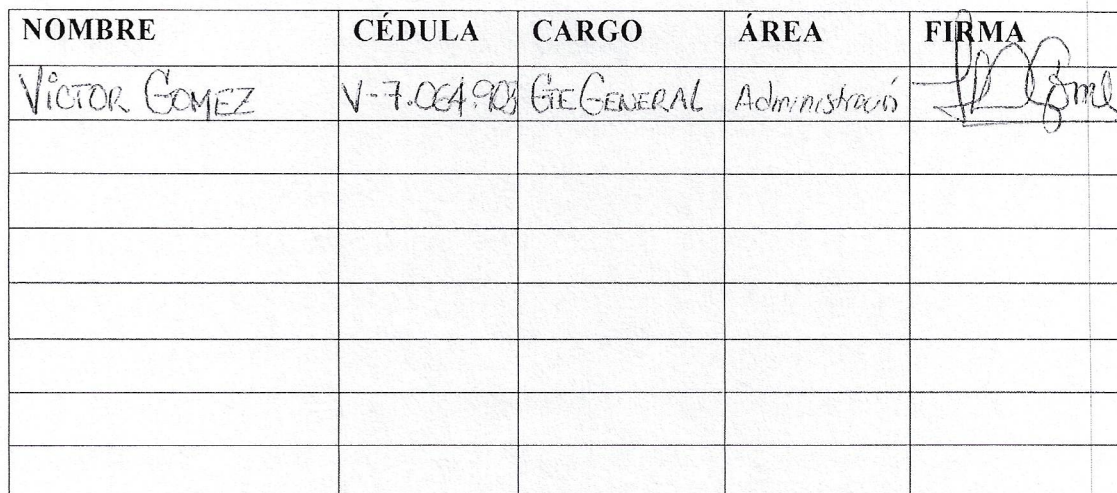 NOMBRE CÉDULA CARGO ÁREA FIRMA
VICTOR GOMEZ GTE GENERAL Administración